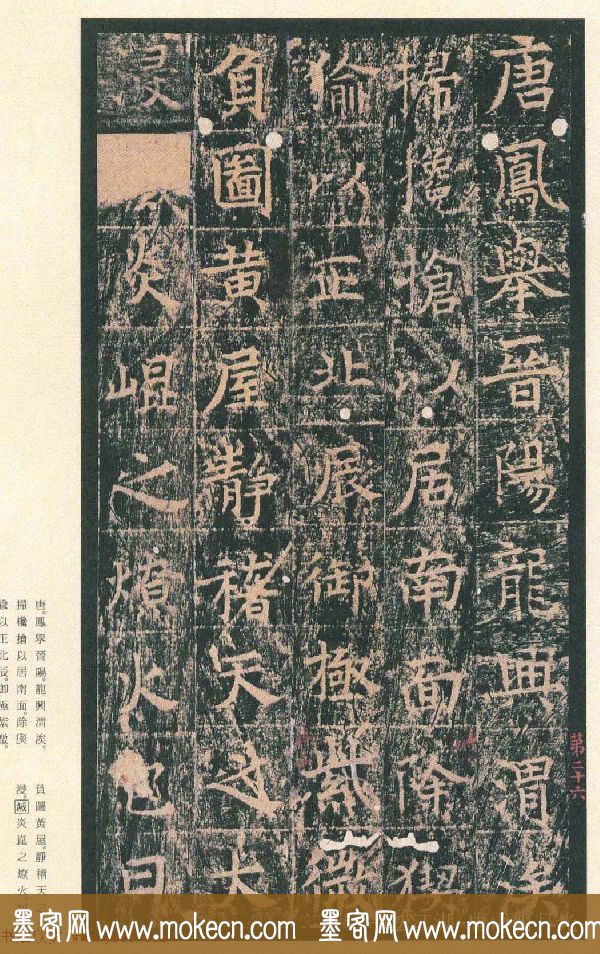 唐鳳舉晉陽龍興渭涘
掃攙搶以居南面除猰
以正北御極紫微
負圖黃屋靜稽天之大
浸炎崐之燎火
第二十六
唐。鳳舉晉陽。龍興渭涘。
掃欃搶以居南面。除猰
以正北辰。御極紫微。
負圖黃屋。靜稽天
浸。滅炎崑之燎火
墨客网 www.mokecn.com 墨客网 www.mokecn.com